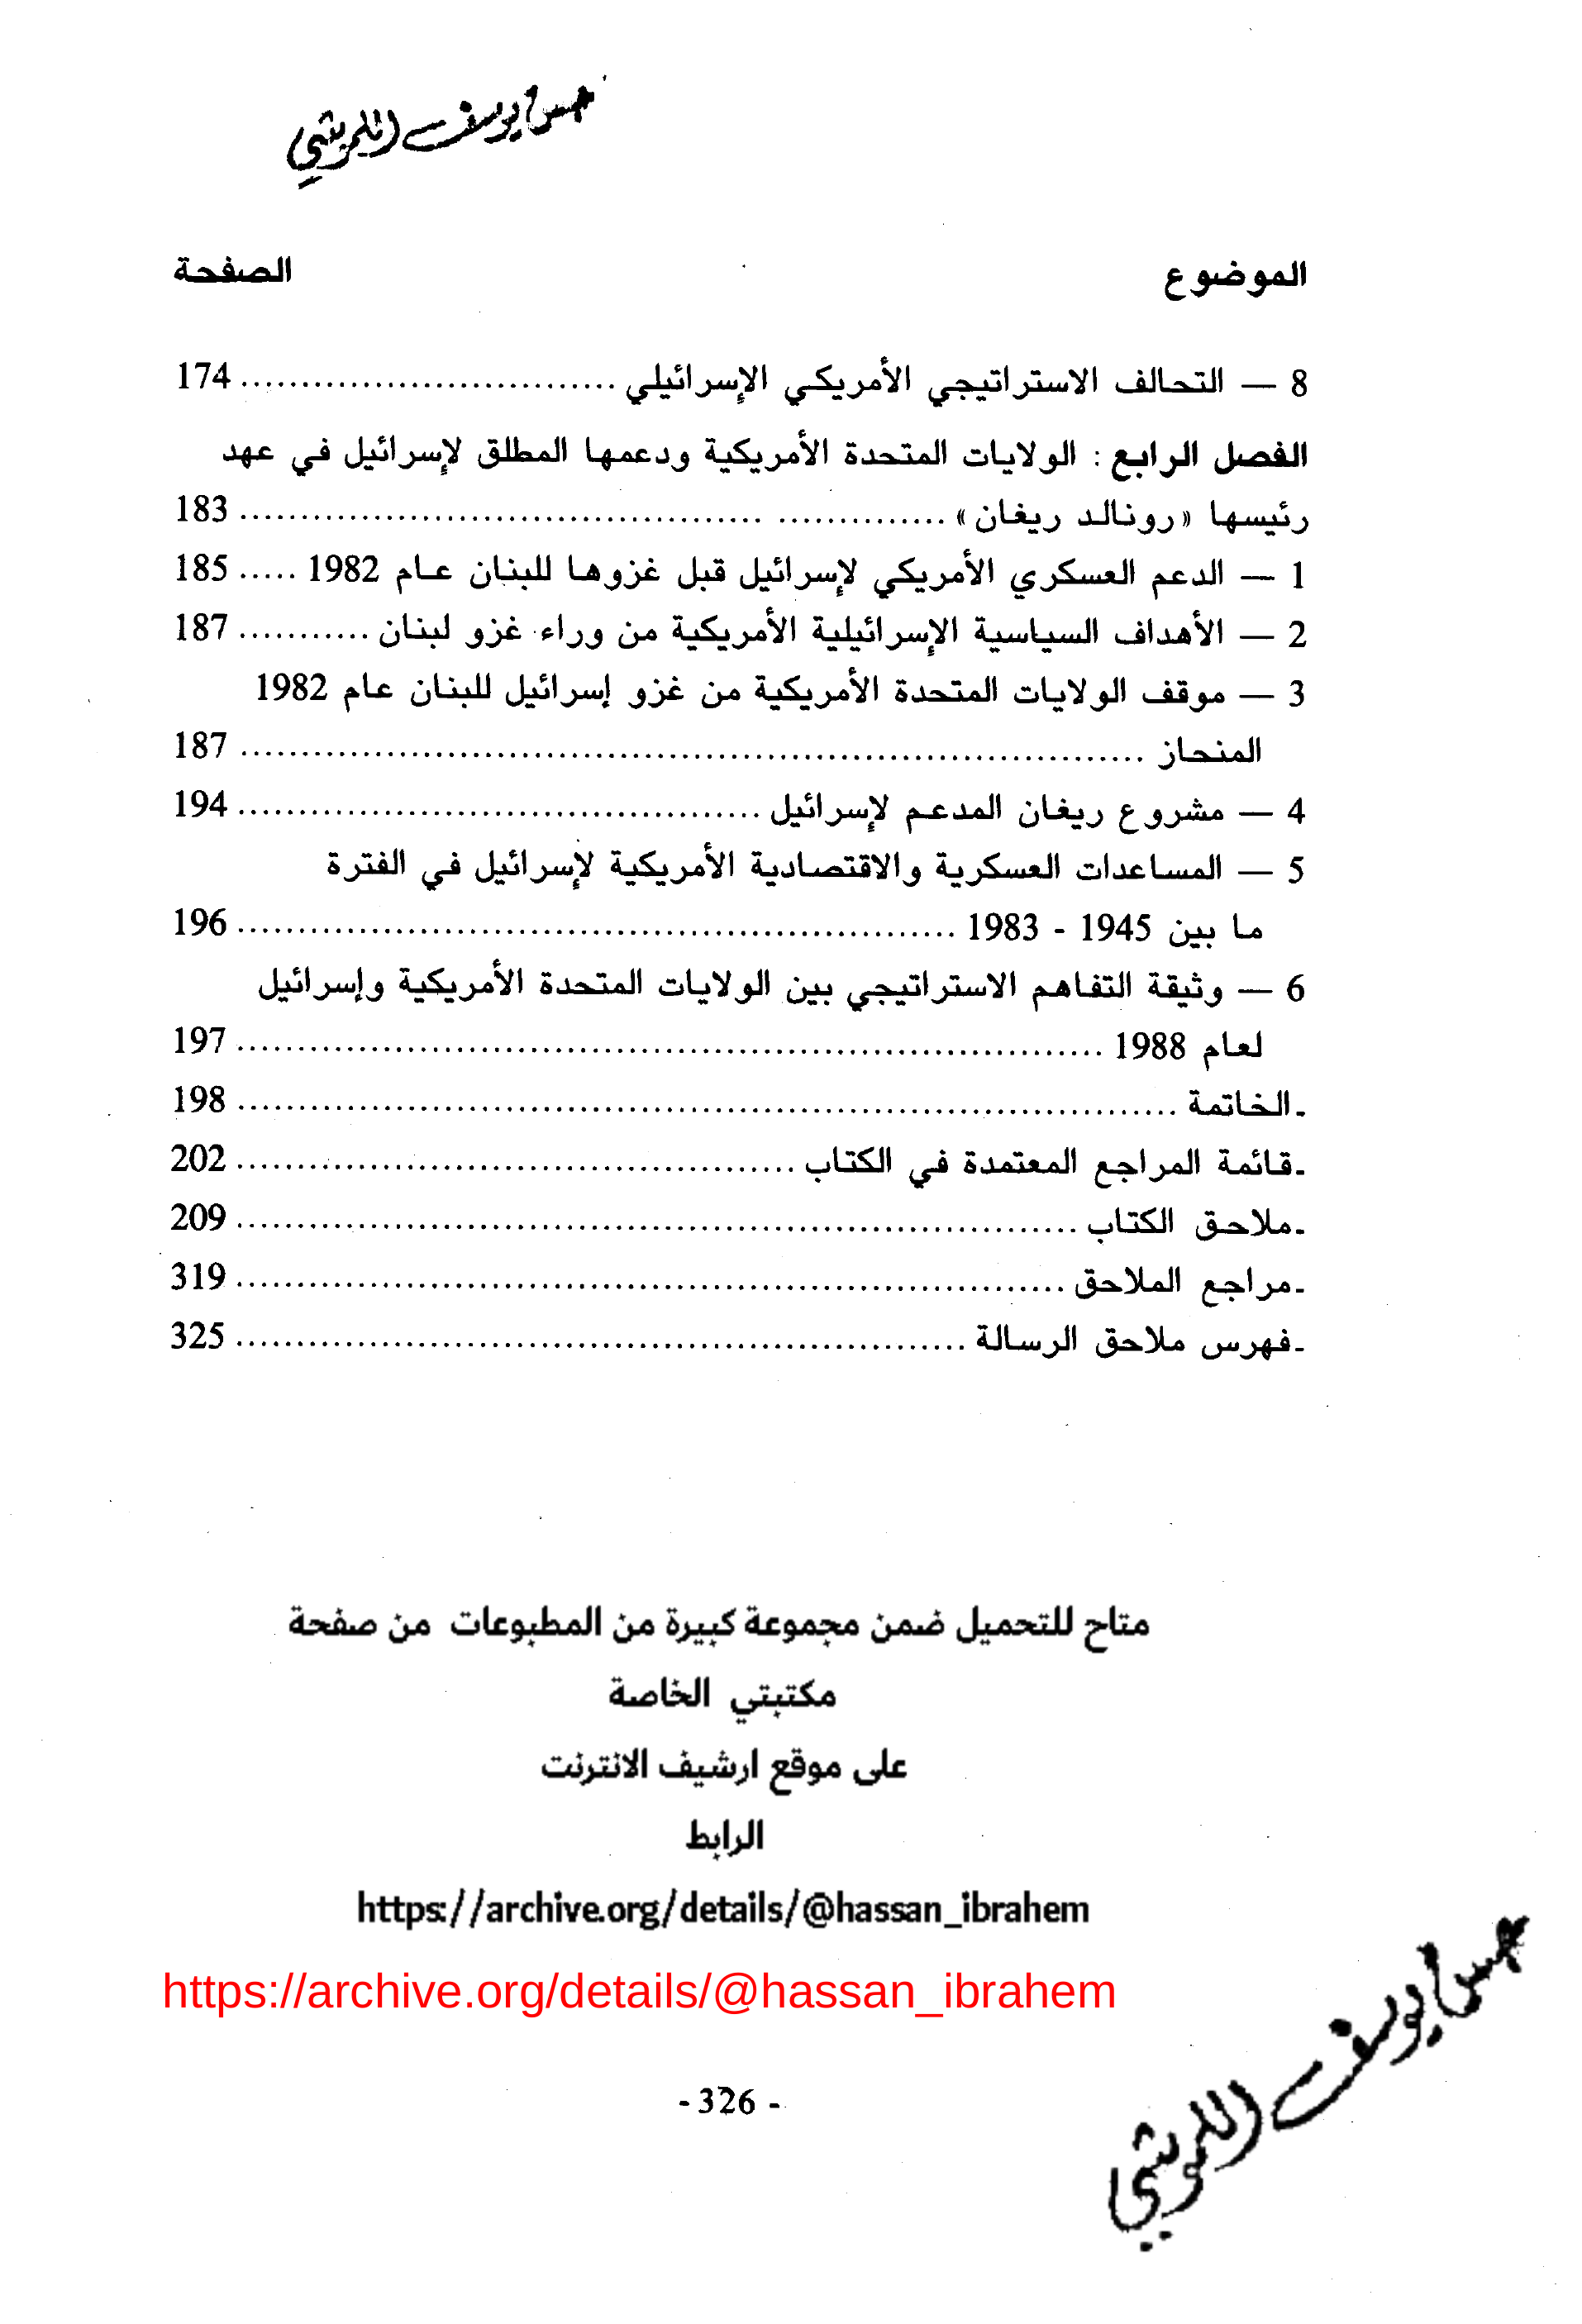 حسن يوسف
الموضوع الصفحة
8 — التحالف الاستراتيجي الأمريكي الإسرائيلي ............................... 174
الفصل الرابع : الولايات المتحدة الأمريكية ودعمها المطلق لإسرائيل في عهد
رئيسها «رونالد ريغان» ......................................................... 183
1 — الدعم العسكري الأمريكي لإسرائيل قبل غزوها للبنان عام 1982 ..... 185
2 — الأهداف السياسية الإسرائيلية الأمريكية من وراء غزو لبنان ........... 187
3 — موقف الولايات المتحدة الأمريكية من غزو إسرائيل للبنان عام 1982
المنحاز ........................................................................... 187
4 — مشروع ريغان المدعم لإسرائيل ........................................... 194
5 — المساعدات العسكرية والاقتصادية الأمريكية لإسرائيل في الفترة
ما بين 1945 - 1983 ........................................................... 196
6 — وثيقة التفاهم الاستراتيجي بين الولايات المتحدة الأمريكية وإسرائيل
لعام 1988 ....................................................................... 197
ـ الخاتمة ............................................................................. 198
ـ قائمة المراجع المعتمدة في الكتاب .............................................. 202
ـ ملاحق الكتاب ..................................................................... 209
ـ مراجع الملاحق .................................................................... 319
ـ فهرس ملاحق الرسالة ............................................................ 325
متاح للتحميل ضمن مجموعة كبيرة من المطبوعات من صفحة
مكتبتي الخاصة
على موقع ارشيف الانترنت
الرابط
https://archive.org/details/@hassan_ibrahem
https://archive.org/details/@hassan_ibrahem
- 326 -
حسن يوسف